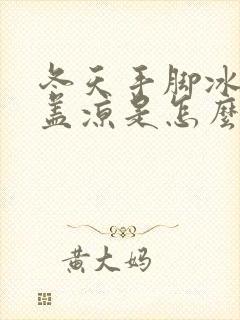 冬天手脚冰
盖凉是怎麽
黄大妈